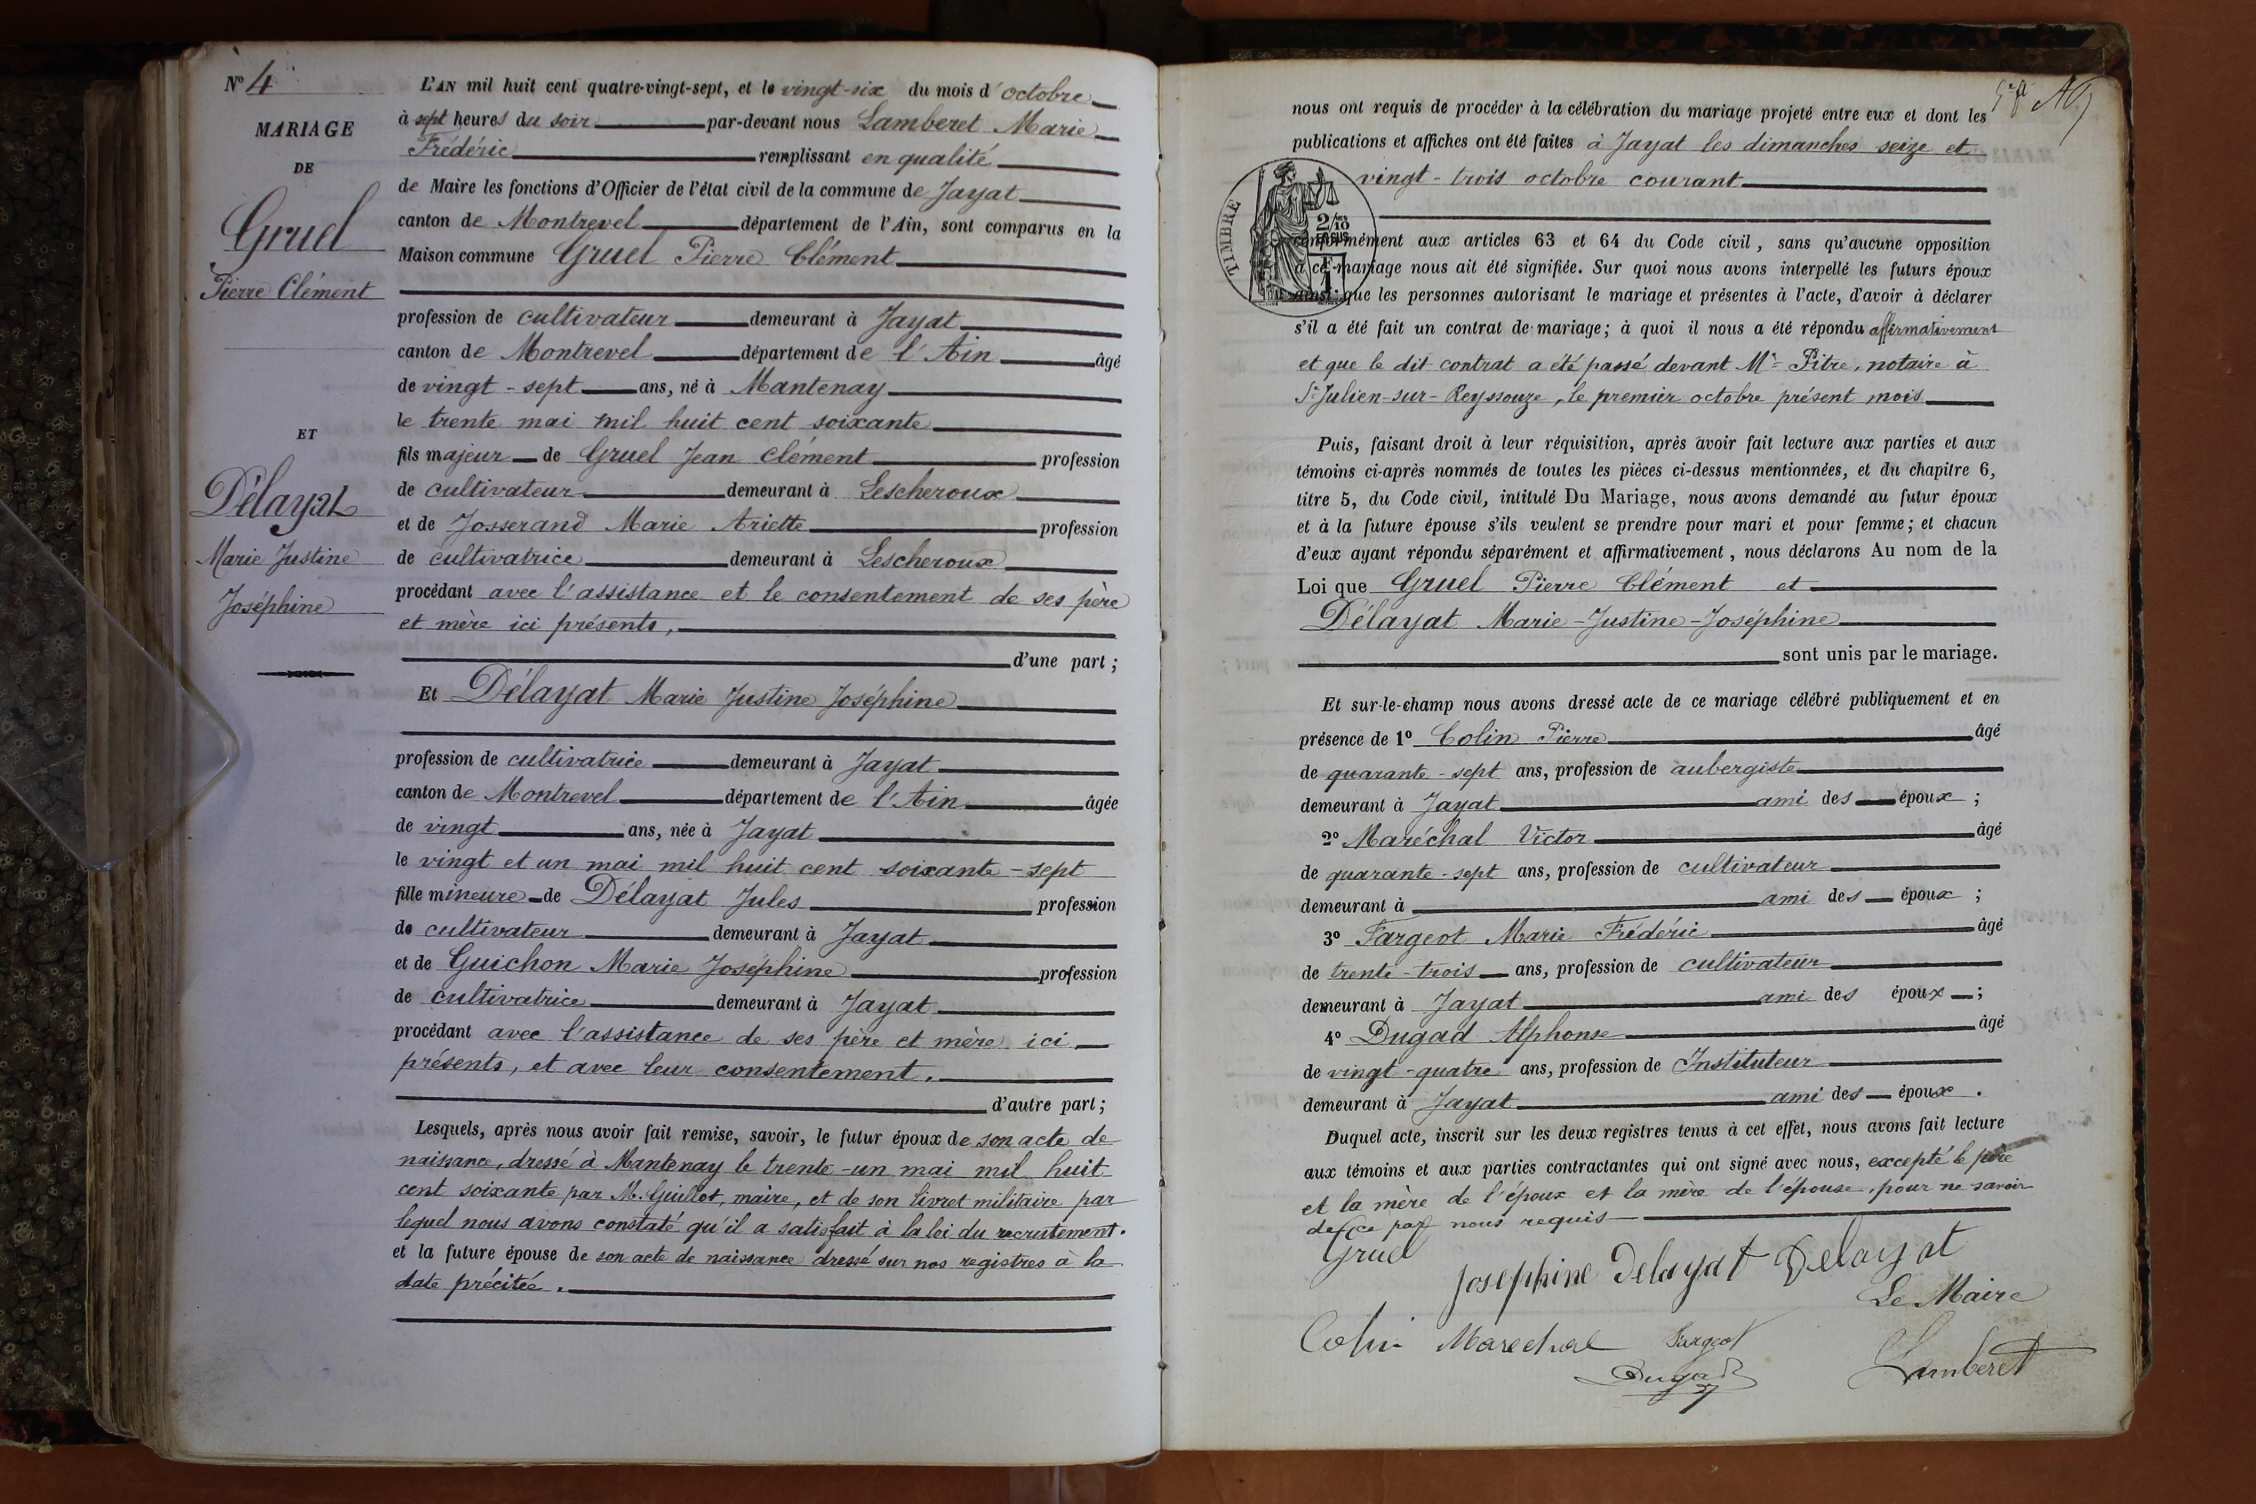 Nº 4
MARIAGE
DE
Gruel
Pierre Clément
ET
Délayat
Marie Justine
Joséphine
L'AN mil huit cent quatre-vingt-sept, et le vingt-six du mois d'octobre
à sept heures du soir par-devant nous Lamberet Marie
Frédéric remplissant en qualité
de Maire les fonctions d'Officier de l'état civil de la commune de Jayat
canton de Montrevel département de l'Ain, sont comparus en la
Maison commune Gruel Pierre Clément
profession de cultivateur demeurant à Jayat
canton de Montrevel département de l'Ain âgé
de vingt-sept ans, né à Mantenay
le trente mai mil huit cent soixante
fils majeur de Gruel Jean Clément profession
de cultivateur demeurant à Lescheroux
et de Josserand Marie Ariette profession
de cultivatrice demeurant à Lescheroux
procédant avec l'assistance et le consentement de ses père
et mère ici présents,
d'une part ;
Et Délayat Marie Justine Joséphine
profession de cultivatrice demeurant à Jayat
canton de Montrevel département de l'Ain âgée
de vingt ans, née à Jayat
le vingt et un mai mil huit cent soixante-sept
fille mineure de Délayat Jules profession
de cultivateur demeurant à Jayat
et de Guichon Marie Joséphine profession
de cultivatrice demeurant à Jayat
procédant avec l'assistance de ses père et mère ici
présents, et avec leur consentement.
d'autre part ;
Lesquels, après nous avoir fait remise, savoir, le futur époux de son acte de
naissance, dressé à Mantenay le trente-un mai mil huit
cent soixante par M. Guillot, maire, et de son livret militaire par
lequel nous avons constaté qu'il a satisfait à la loi du recrutement.
et la future épouse de son acte de naissance dressé sur nos registres à la
date précitée.
nous ont requis de procéder à la célébration du mariage projeté entre eux et dont les
publications et affiches ont été faites à Jayat les dimanches seize et
vingt-trois octobre courant
TIMBRE
2/10
EN SUS
1F
conformément aux articles 63 et 64 du Code civil, sans qu'aucune opposition
à ce mariage nous ait été signifiée. Sur quoi nous avons interpellé les futurs époux
ainsi que les personnes autorisant le mariage et présentes à l'acte, d'avoir à déclarer
s'il a été fait un contrat de mariage ; à quoi il nous a été répondu affirmativement
et que le dit contrat a été passé devant Me Pitre, notaire à
St Julien-sur-Reyssouze, le premier octobre présent mois
Puis, faisant droit à leur réquisition, après avoir fait lecture aux parties et aux
témoins ci-après nommés de toutes les pièces ci-dessus mentionnées, et du chapitre 6,
titre 5, du Code civil, intitulé Du Mariage, nous avons demandé au futur époux
et à la future épouse s'ils veulent se prendre pour mari et pour femme ; et chacun
d'eux ayant répondu séparément et affirmativement, nous déclarons Au nom de la
Loi que Gruel Pierre Clément et
Délayat Marie-Justine-Joséphine
sont unis par le mariage.
Et sur-le-champ nous avons dressé acte de ce mariage célébré publiquement et en
présence de 1º Colin Pierre âgé
de quarante-sept ans, profession de aubergiste
demeurant à Jayat ami des époux ;
2º Maréchal Victor âgé
de quarante-sept ans, profession de cultivateur
demeurant à ami des époux ;
3º Fargeot Marie Frédéric âgé
de trente-trois ans, profession de cultivateur
demeurant à Jayat ami des époux ;
4º Dugad Alphonse âgé
de vingt-quatre ans, profession de Instituteur
demeurant à Jayat ami des époux.
Duquel acte, inscrit sur les deux registres tenus à cet effet, nous avons fait lecture
aux témoins et aux parties contractantes qui ont signé avec nous, excepté le père
et la mère de l'époux et la mère de l'épouse, pour ne savoir
de ce par nous requis
Gruel
Josephine Delayat Delayat
Le Maire
Colin Marechal Fargeot
Dugad
Lamberet